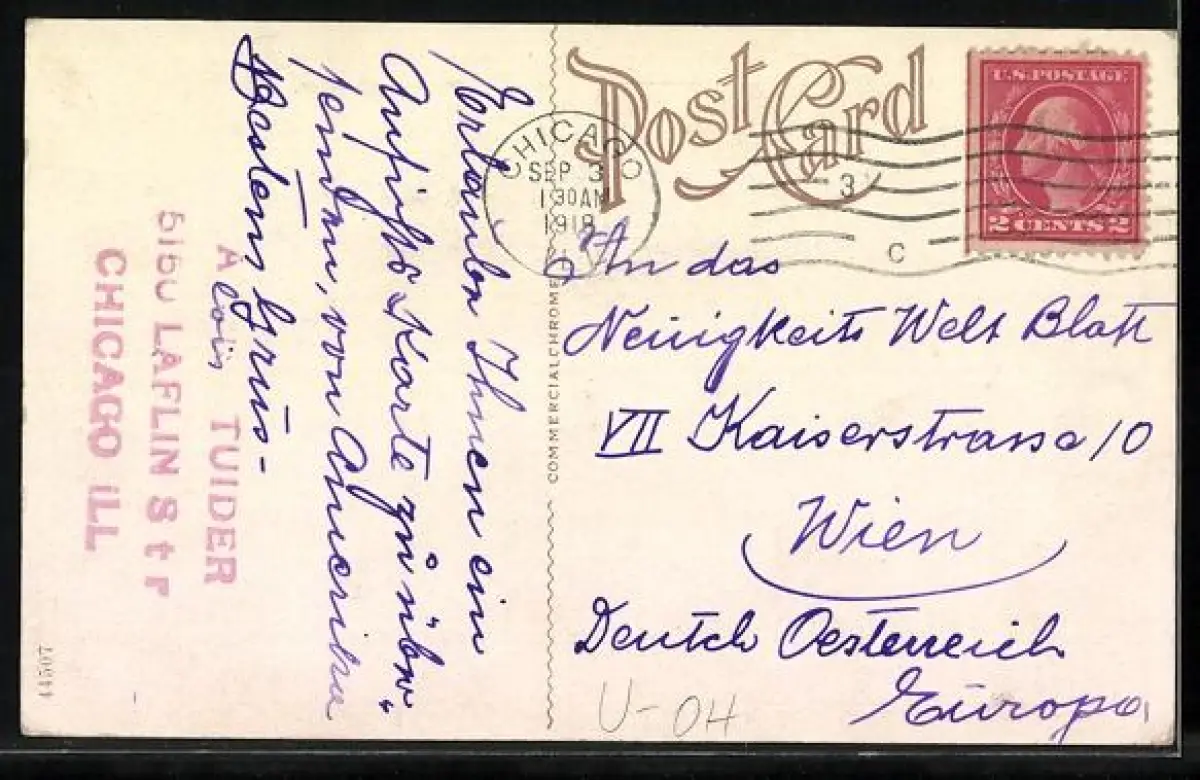 Post Card
U.S. POSTAGE
2 CENTS 2
CHICAGO
SEP 3
1 30 AM
3
C
An das
Neuigkeits Welt Blatt
VII Kaiserstrasse 10
Wien
Deutch Oesterreich
Europa
U-OH
COMMERCIALCHROME
Erlauben Ihnen ein
Ansichts Karte zu über-
senden, von Amerika
Bestens Grüs-
Alois
A TUIDER
LAFLIN Str
CHICAGO ILL